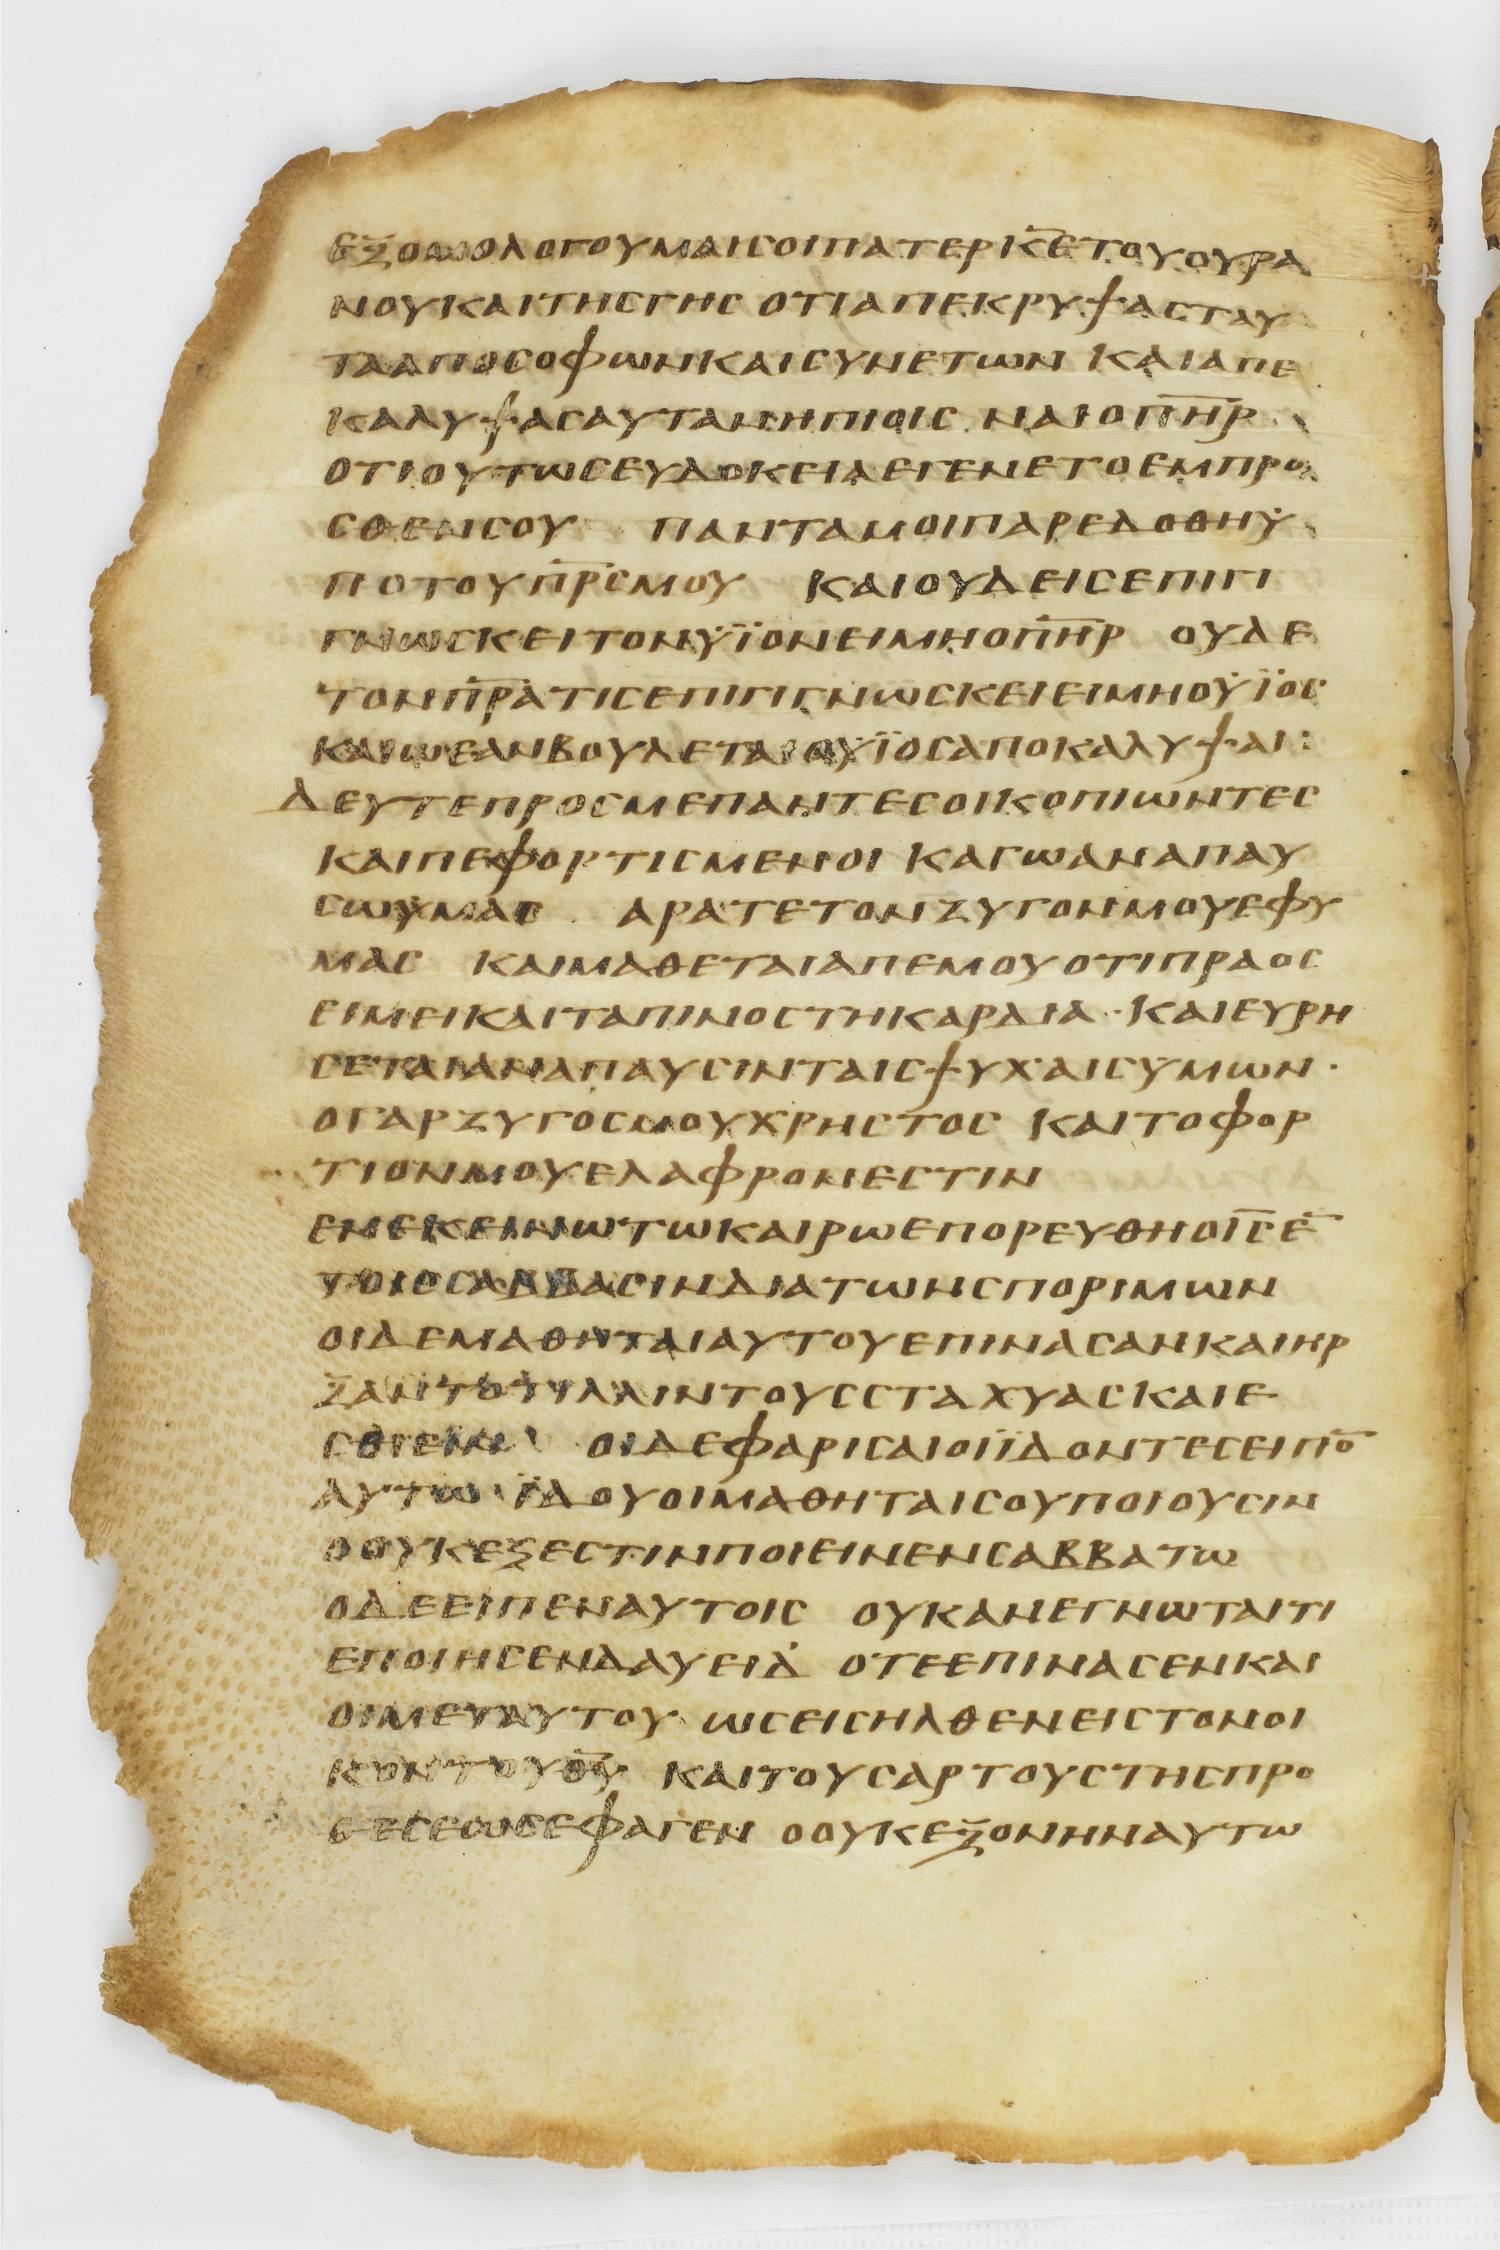 εξομολογουμαι σοι πατερ κ̅ε̅ του ουρα
νου και της γης οτι απεκρυψας ταυ
τα απο σοφων και συνετων και απε
καλυψας αυτα νηπιοις ναι ο π̅η̅ρ̅
οτι ουτως ευδοκεια εγενετο εμπρο
σθεν σου παντα μοι παρεδοθη ϋ
πο του π̅ρ̅ς̅ μου και ουδεις επιγι
γνωσκει τον ϋϊον ει μη ο π̅η̅ρ̅ ουδε
τον π̅ρ̅α̅ τις επιγιγνωσκει ει μη ο ϋϊος
και ω εαν βουλεται ο ϋϊος αποκαλυψαι :
δευτε προς με παντες οι κοπιωντες
και πεφορτισμενοι καγω αναπαυ
σω υμας αρατε τον ζυγον μου εφ υ
μας και μαθεται απ εμου οτι πραος
ειμει και ταπινος τη καρδια · και ευρη
σεται αναπαυσιν ταις ψυχαις υμων ·
ο γαρ ζυγος μου χρηστος και το φορ
τιον μου ελαφρον εστιν
εν εκεινω τω καιρω επορευθη ο ι̅ς̅ ε̅
τοις σαββασιν δια των σποριμων
οι δε μαθηται αυτου επινασαν και ηρ
ξαντο τιλλιν τους σταχυας και ε
σθειειν οι δε φαρισαιοι ϊδοντες ειπο̅
αυτω ϊδου οι μαθηται σου ποιουσιν
ο ουκ εξεστιν ποιειν εν σαββατω
ο δε ειπεν αυτοις ουκ ανεγνωται τι
εποιησεν δαυειδ οτε επινασεν και
οι μετ αυτου ως εισηλθεν εις τον οι
κον του θ̅υ̅ και τους αρτους της προ
θεσεως εφαγεν ο ουκ εξον ην αυτω